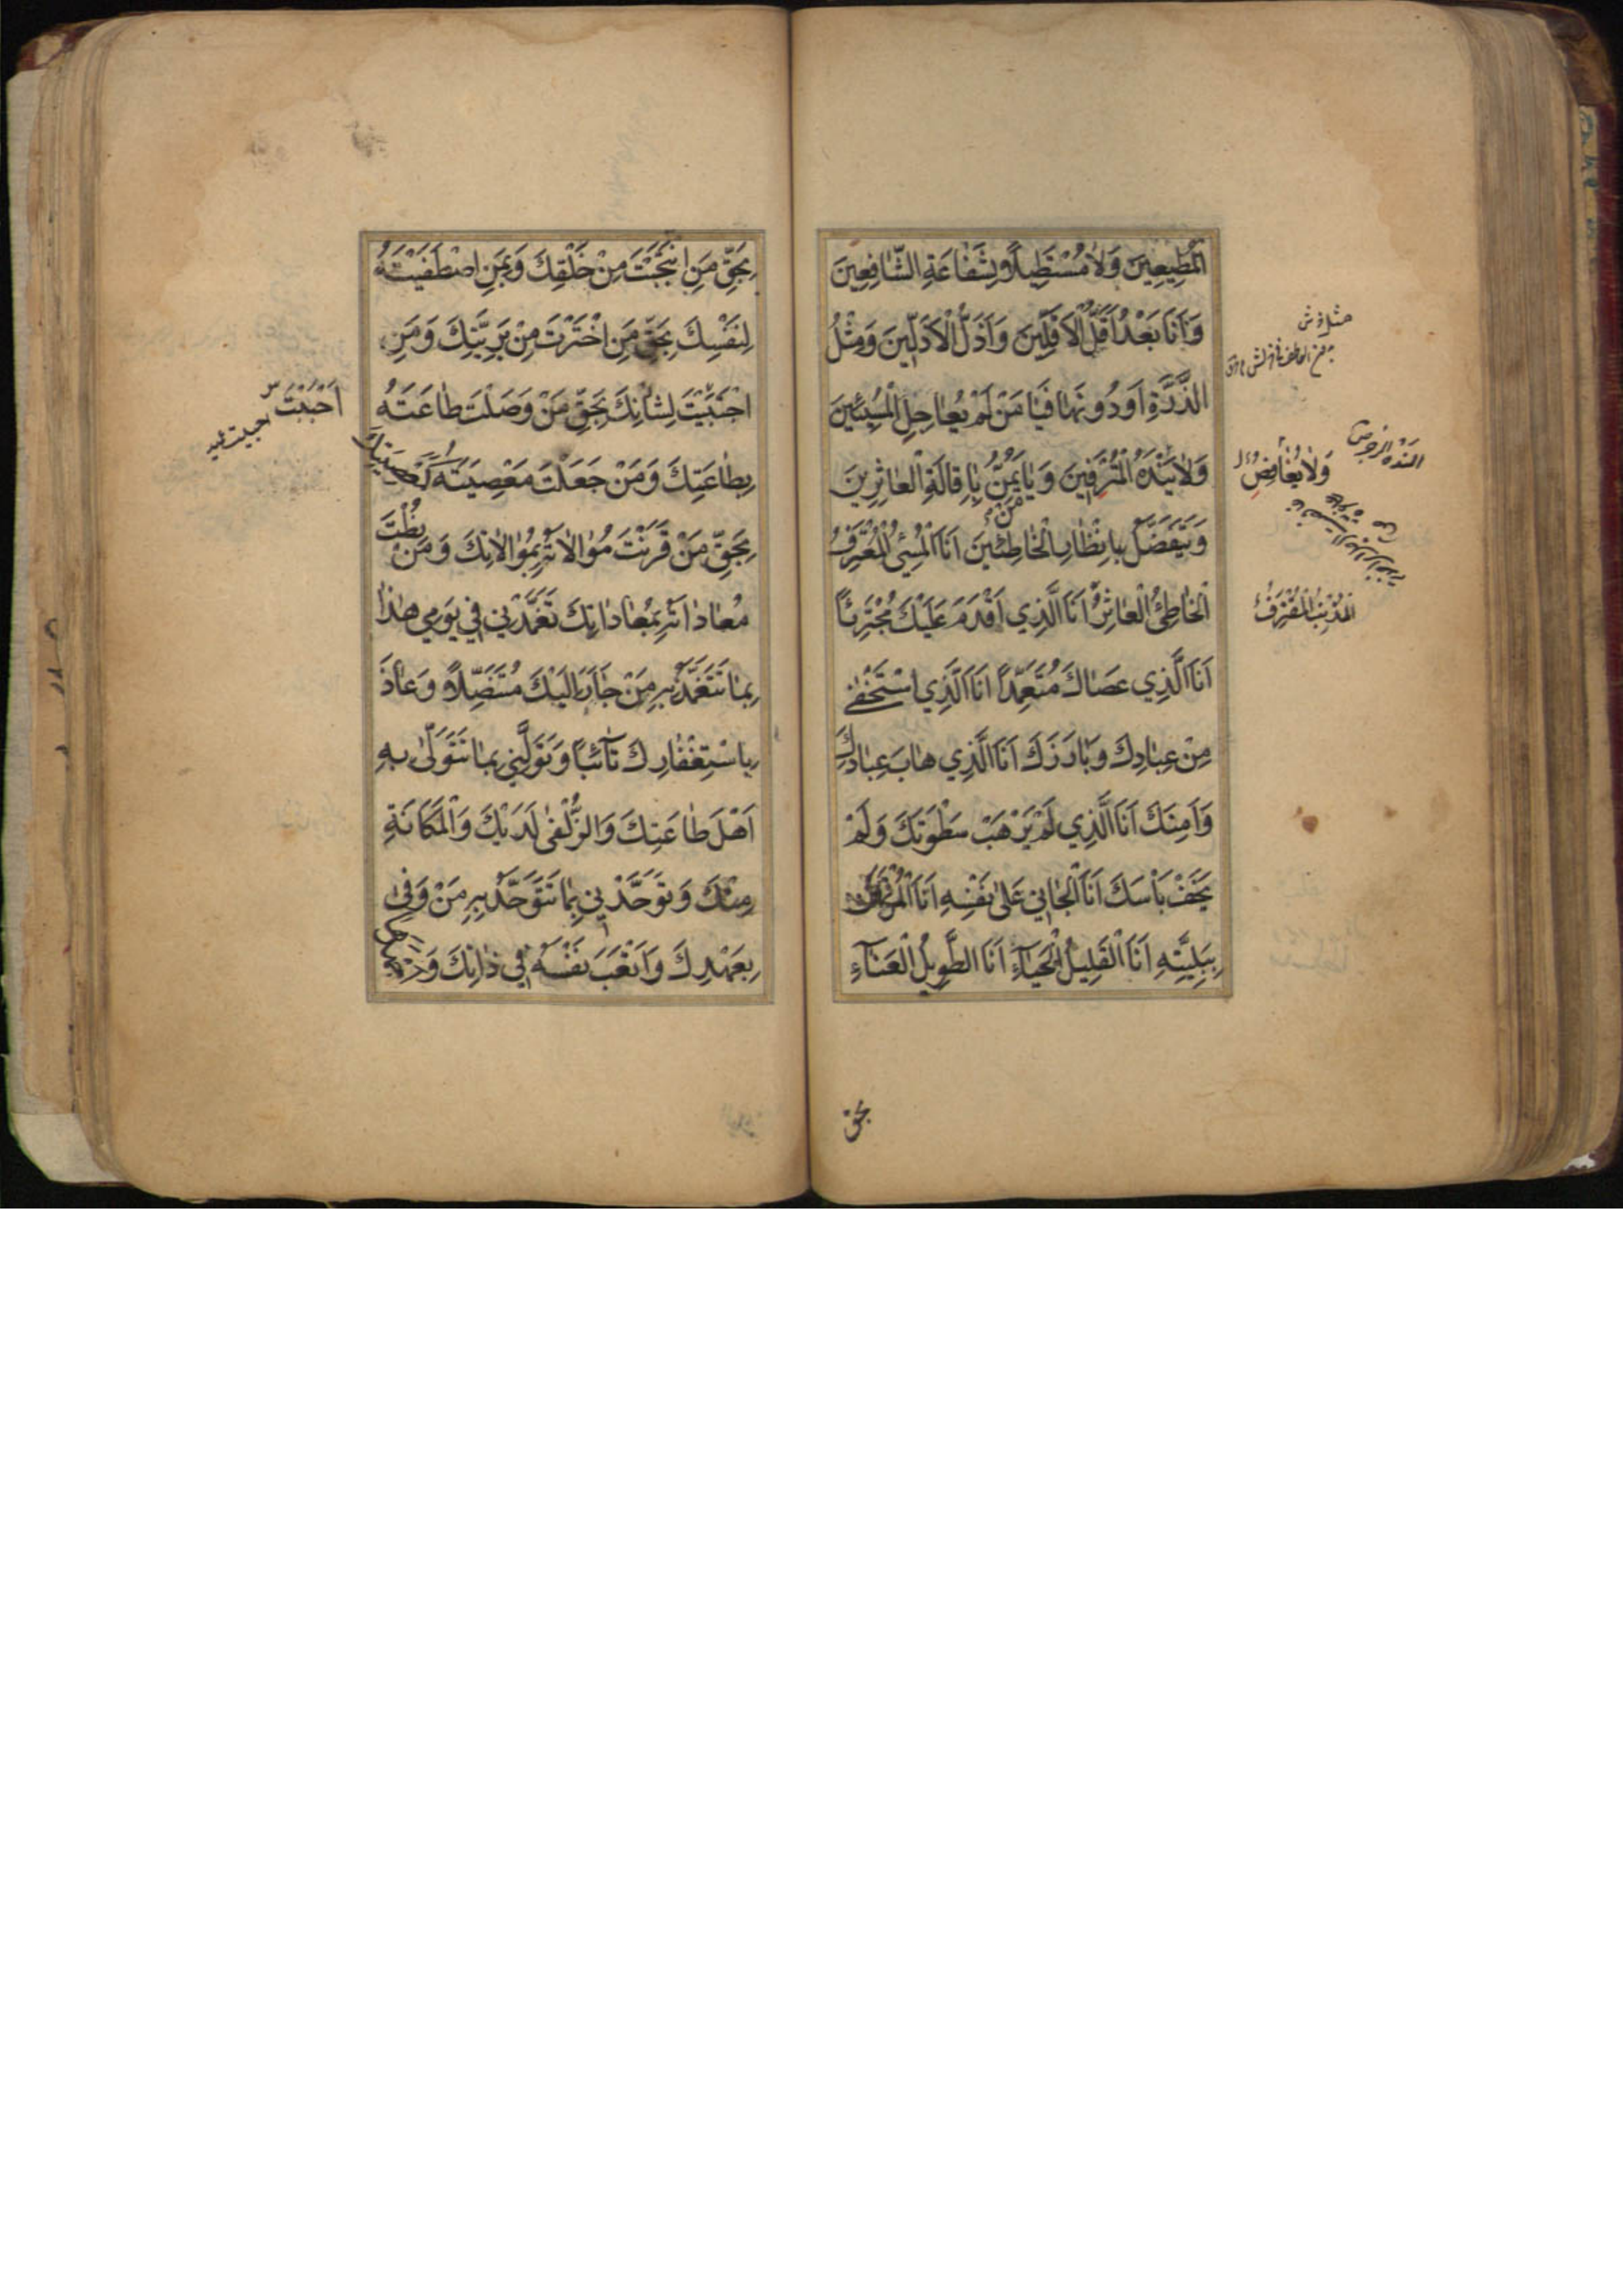 الْمُطِيعِينَ وَلَا مُسْتَظِلًّا وَلِشَفَاعَةِ الشَّافِعِينَ
وَاَنَا بَعْدُ اَقَلُّ الْاَقَلِّينَ وَاَذَلُّ الْاَذَلِّينَ وَمِثْلُ
الذَّرَّةِ اَوْ دُونَهَا فَيَا مَنْ لَمْ يُعَاجِلِ الْمُسِيئِينَ
وَلَا يَنْدَهُ الْمُتْرَفِينَ وَيَا مَنْ يَمُنُّ بِاِقَالَةِ الْعَاثِرِينَ
وَيَتَفَضَّلُ بِاِنْظَارِ الْخَاطِئِينَ اَنَا الْمُسِيءُ الْمُعْتَرِفُ
الْخَاطِئُ الْعَاثِرُ اَنَا الَّذِي اَقْدَمَ عَلَيْكَ مُجْتَرِئًا
اَنَا الَّذِي عَصَاكَ مُتَعَمِّدًا اَنَا الَّذِي اسْتَخْفٰى
مِنْ عِبَادِكَ وَبَارَزَكَ اَنَا الَّذِي هَابَ عِبَادَكَ
وَاَمِنَكَ اَنَا الَّذِي لَمْ يَرْهَبْ سَطْوَتَكَ وَلَمْ
يَخَفْ بَاْسَكَ اَنَا الْجَانِي عَلٰى نَفْسِهِ اَنَا الْمُرْتَهَنُ
بِبَلِيَّتِهِ اَنَا الْقَلِيلُ الْحَيَاءِ اَنَا الطَّوِيلُ الْعَنَاءِ
وَلَا يُغَافِصُ
الْمُذْنِبُ الْمُقْتَرِفُ
بحق
بِحَقِّ مَنِ انْتَجَبْتَ مِنْ خَلْقِكَ وَبِمَنِ اصْطَفَيْتَهُ
لِنَفْسِكَ بِحَقِّ مَنِ اخْتَرْتَ مِنْ بَرِيَّتِكَ وَمَنِ
اجْتَبَيْتَ لِشَاْنِكَ بِحَقِّ مَنْ وَصَلْتَ طَاعَتَهُ
بِطَاعَتِكَ وَمَنْ جَعَلْتَ مَعْصِيَتَهُ كَمَعْصِيَتِكَ
بِحَقِّ مَنْ قَرَنْتَ مُوَالَاتَهُ بِمُوَالَاتِكَ وَمَنْ نُطْتَ
مُعَادَاتَهُ بِمُعَادَاتِكَ تَغَمَّدْنِي فِي يَوْمِي هٰذَا
بِمَا تَتَغَمَّدُ بِهِ مَنْ جَاَرَ اِلَيْكَ مُتَنَصِّلًا وَعَاذَ
بِاسْتِغْفَارِكَ تَائِبًا وَتَوَلَّنِي بِمَا تَتَوَلّٰى بِهِ
اَهْلَ طَاعَتِكَ وَالزُّلْفٰى لَدَيْكَ وَالْمَكَانَةِ
مِنْكَ وَتَوَحَّدْنِي بِمَا تَتَوَحَّدُ بِهِ مَنْ وَفٰى
بِعَهْدِكَ وَاَتْعَبَ نَفْسَهُ فِي ذَاتِكَ
اَحْبَبْتَ